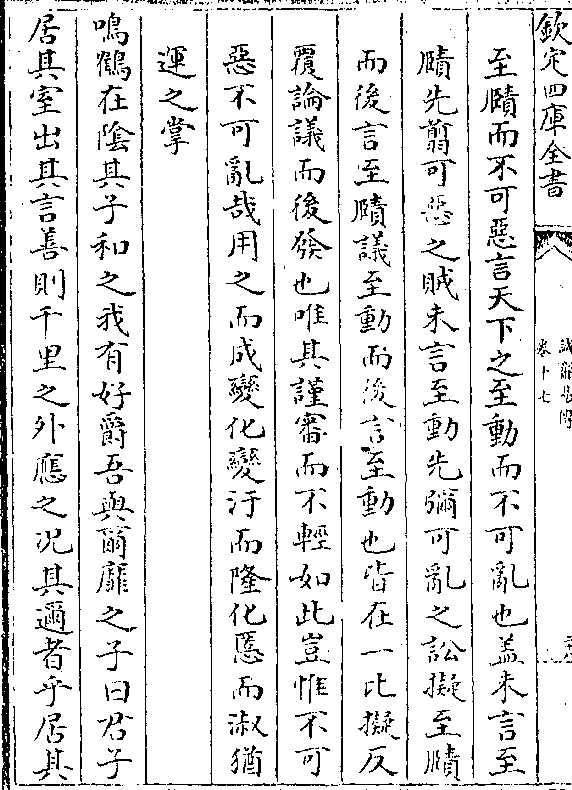 欽定四庫全書
誠齋易傳
卷十七
至賾而不可惡言天下之至動而不可亂也盖未言至
賾先翦可惡之賊未言至動先彌可亂之訟擬至賾
而後言至賾議至動而後言至動也皆在一比擬反
覆論議而後發也唯其謹審而不輕如此豈惟不可
惡不可亂哉用之而成變化變汙而隆化慝而淑猶
運之掌
鳴鶴在陰其子和之我有好爵吾與爾靡之子曰君子
居其室出其言善則千里之外應之况其邇者乎居其